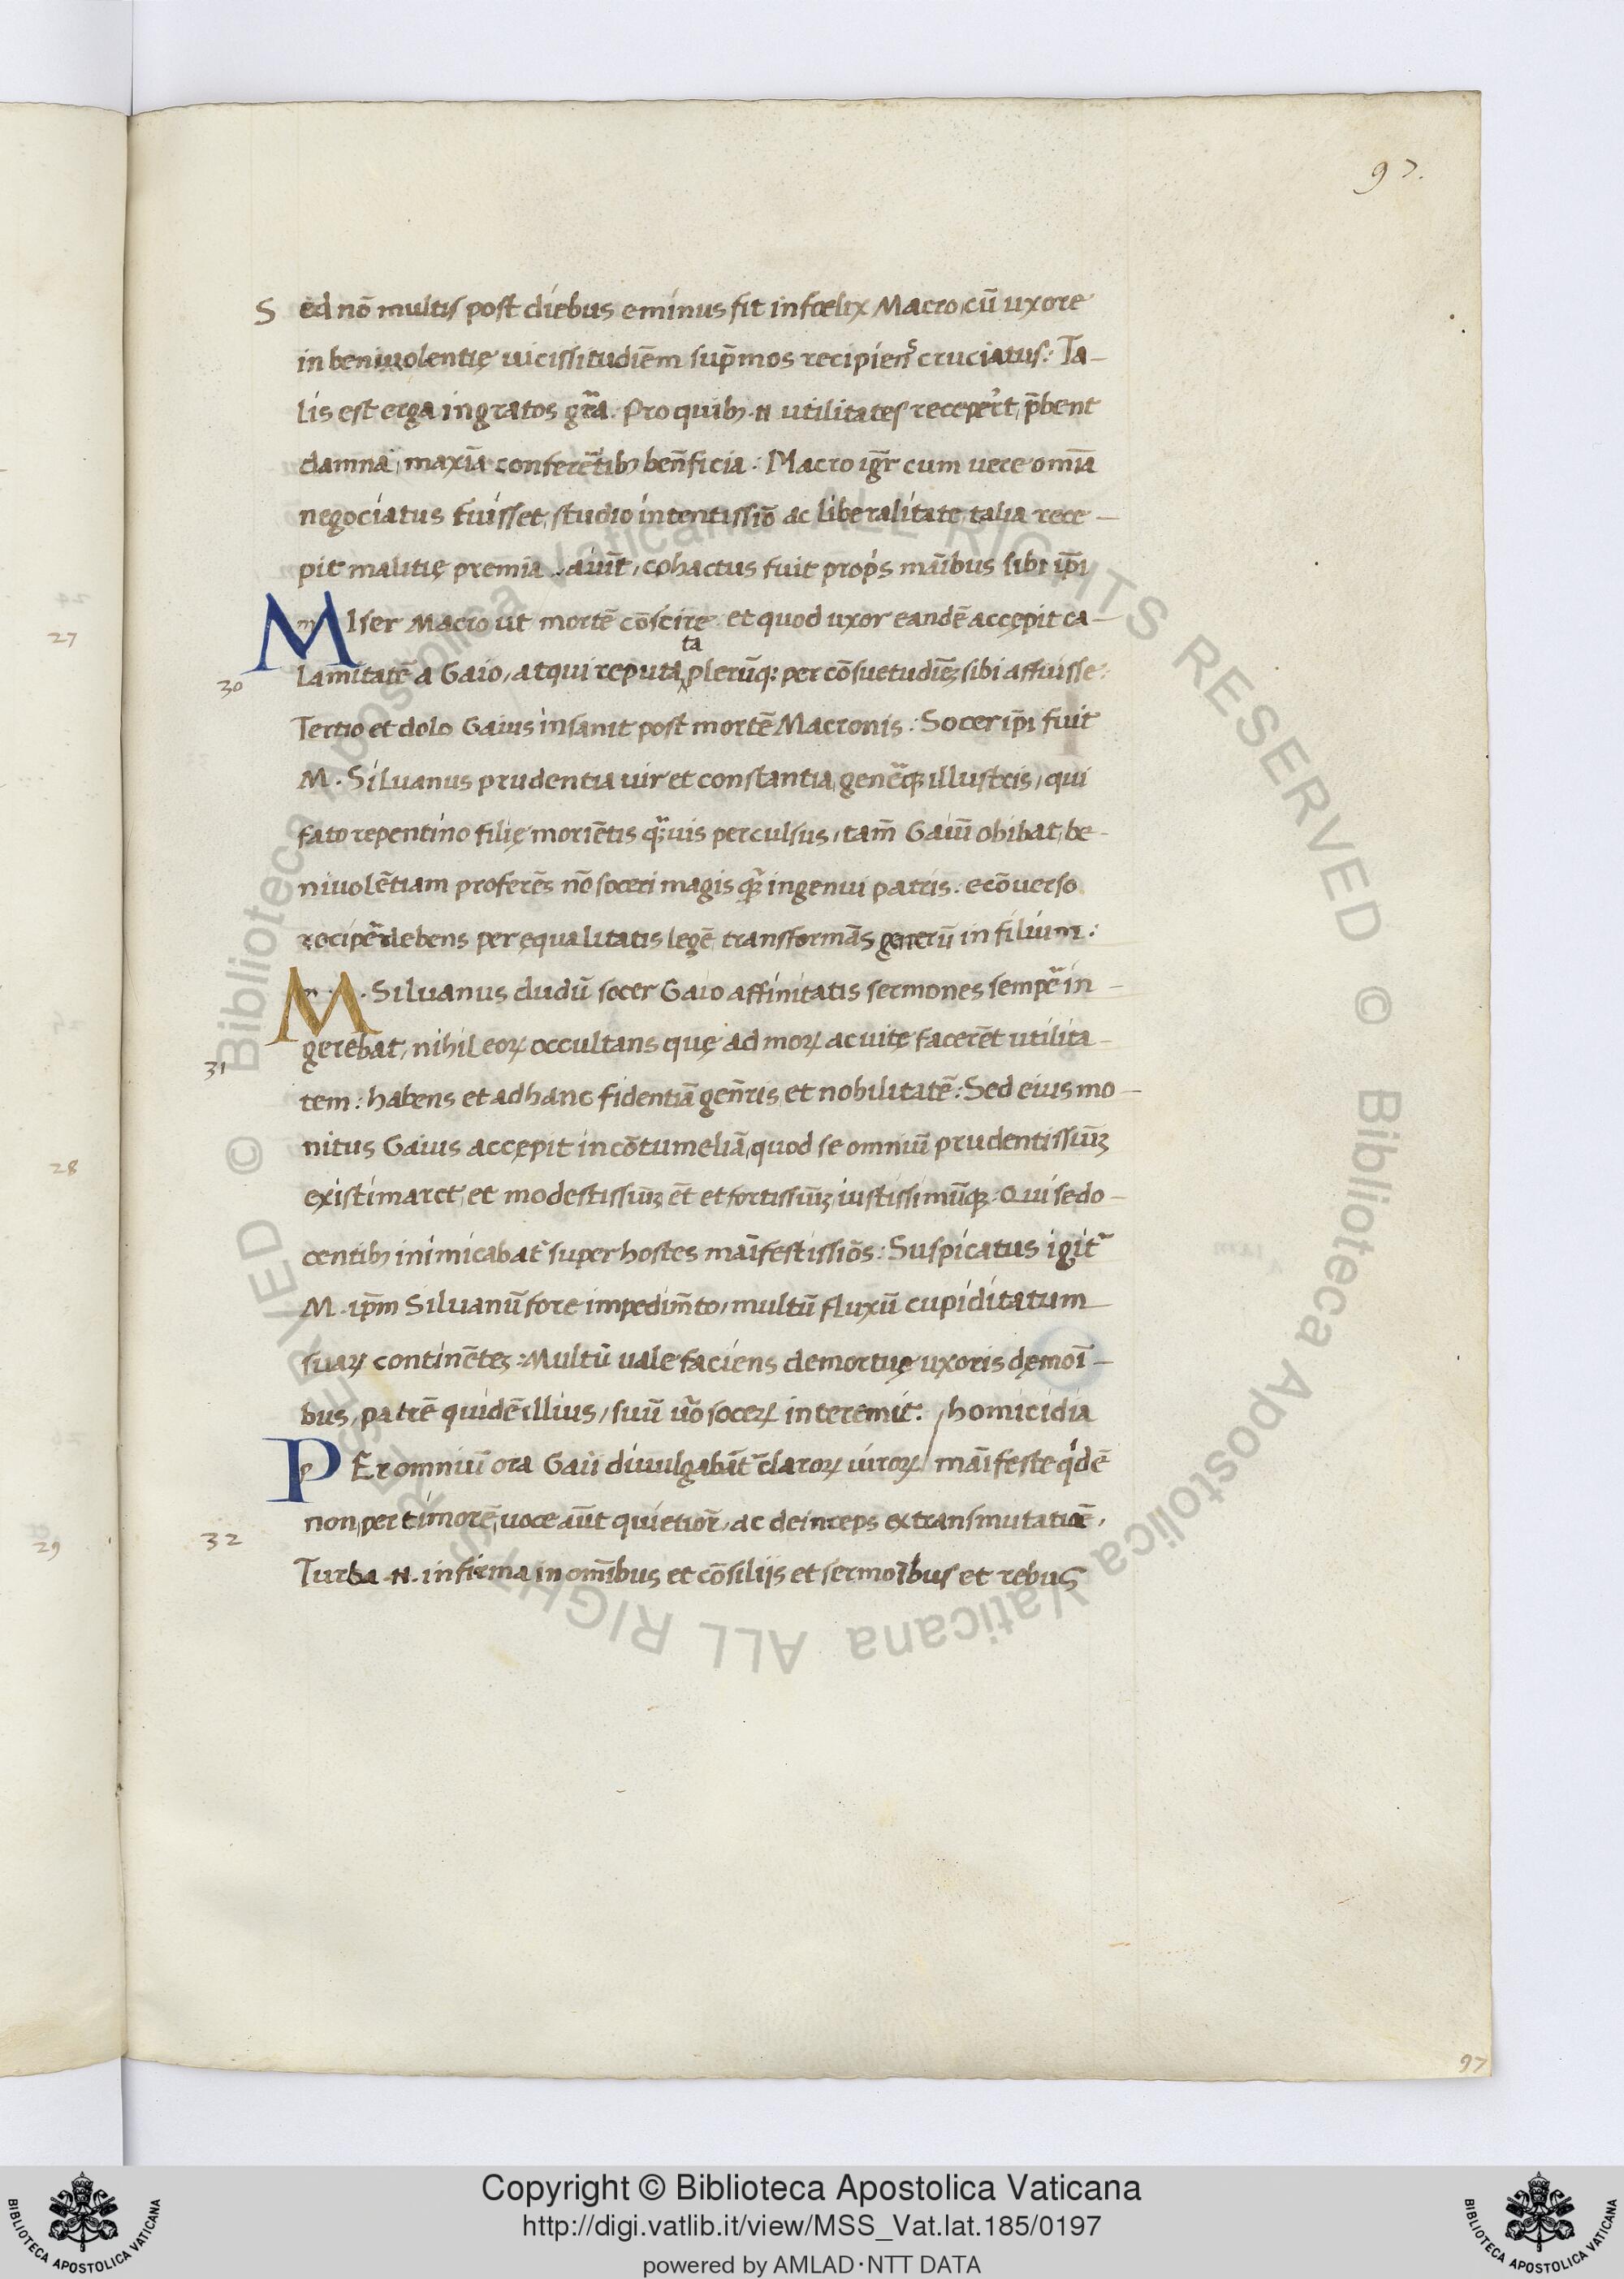 97.
Sed nō multis post diebus eminus fit infœlix Macro, cū uxore
in beniuolentię uicissitudiēm sup̄mos recipiens cruciatus: Ta-
lis est erga ingratos gr̄a. Pro quib; .n. utilitates receper̄t, p̄bent
damna, maxīa conferētib; ben̄ficia: Macro igr̄ cum uere omīa
negociatus fuisset, studio intentissīo ac liberalitate, talia rece-
pit malitię premīa. aiūt, cohactus fuit proprīs māibus sibi ip̄i
27
MIser Macro ut mortē cōscire. et quod uxor eandē accępit ca-
ta
30
lamitatē a Gaio, atqui reputa plerūq: per cōsuetudīeȝ sibi affuisse:
Tertio et dolo Gaius insanit post mortē Macronis: Socer ip̄i fuit
M. Siluanus prudentia uir et constantia, genēq; illustris, qui
fato repentino filię moriētis q̄uis perculsus, tam̄ Gaiū obibat, be-
niuolētiam proferēs nō soceri magis q̄ ingenui patris. ecōuerso
recipēr debens per ęqualitatis legē, transformās generū in filium:
M. Siluanus dudū socer Gaio affinitatis sermones sempēr in-
gerebat, nihil eoꝝ occultans quę ad moꝝ ac uitę facerēt utilita-
31
tem: habens et ad hanc fidentiā gen̄ris et nobilitatē: Sed eius mo-
nitus Gaius accępit in cōtumeliā, quod se omniū prudentissiūȝ
28
existimaret, et modestissiūȝ ēt et fortissiūȝ iustissimūq;. Qui se do-
centib; inimicabat᷑ super hostes māifestissiōs: Suspicatus igit᷑
M. ip̄m Siluanū fore impedim̄to, multū fluxū cupiditatum
suaꝝ continēteȝ: Multū uale faciens demortuę uxoris dęmoī-
bus, patrē quidē illius, suū ūo soceꝝ interemit. homicidia
PEr omniū ora Gaii diuulgabāt᷑ claroꝝ uiroꝝ māifeste qͥdē
non, per timorē, uoce aūt quietior̄, ac deinceps ex transmutatiōē,
32
29
Turba .n. infirma in om̄ibus et cōsiliis et sermoībus et rebus
97
Copyright © Biblioteca Apostolica Vaticana
http://digi.vatlib.it/view/MSS_Vat.lat.185/0197
powered by AMLAD·NTT DATA
BIBLIOTECA APOSTOLICA VATICANA
BIBLIOTECA APOSTOLICA VATICANA
© Biblioteca Apostolica Vaticana ALL RIGHTS RESERVED © Biblioteca Apostolica Vaticana ALL RIGHTS RESERVED